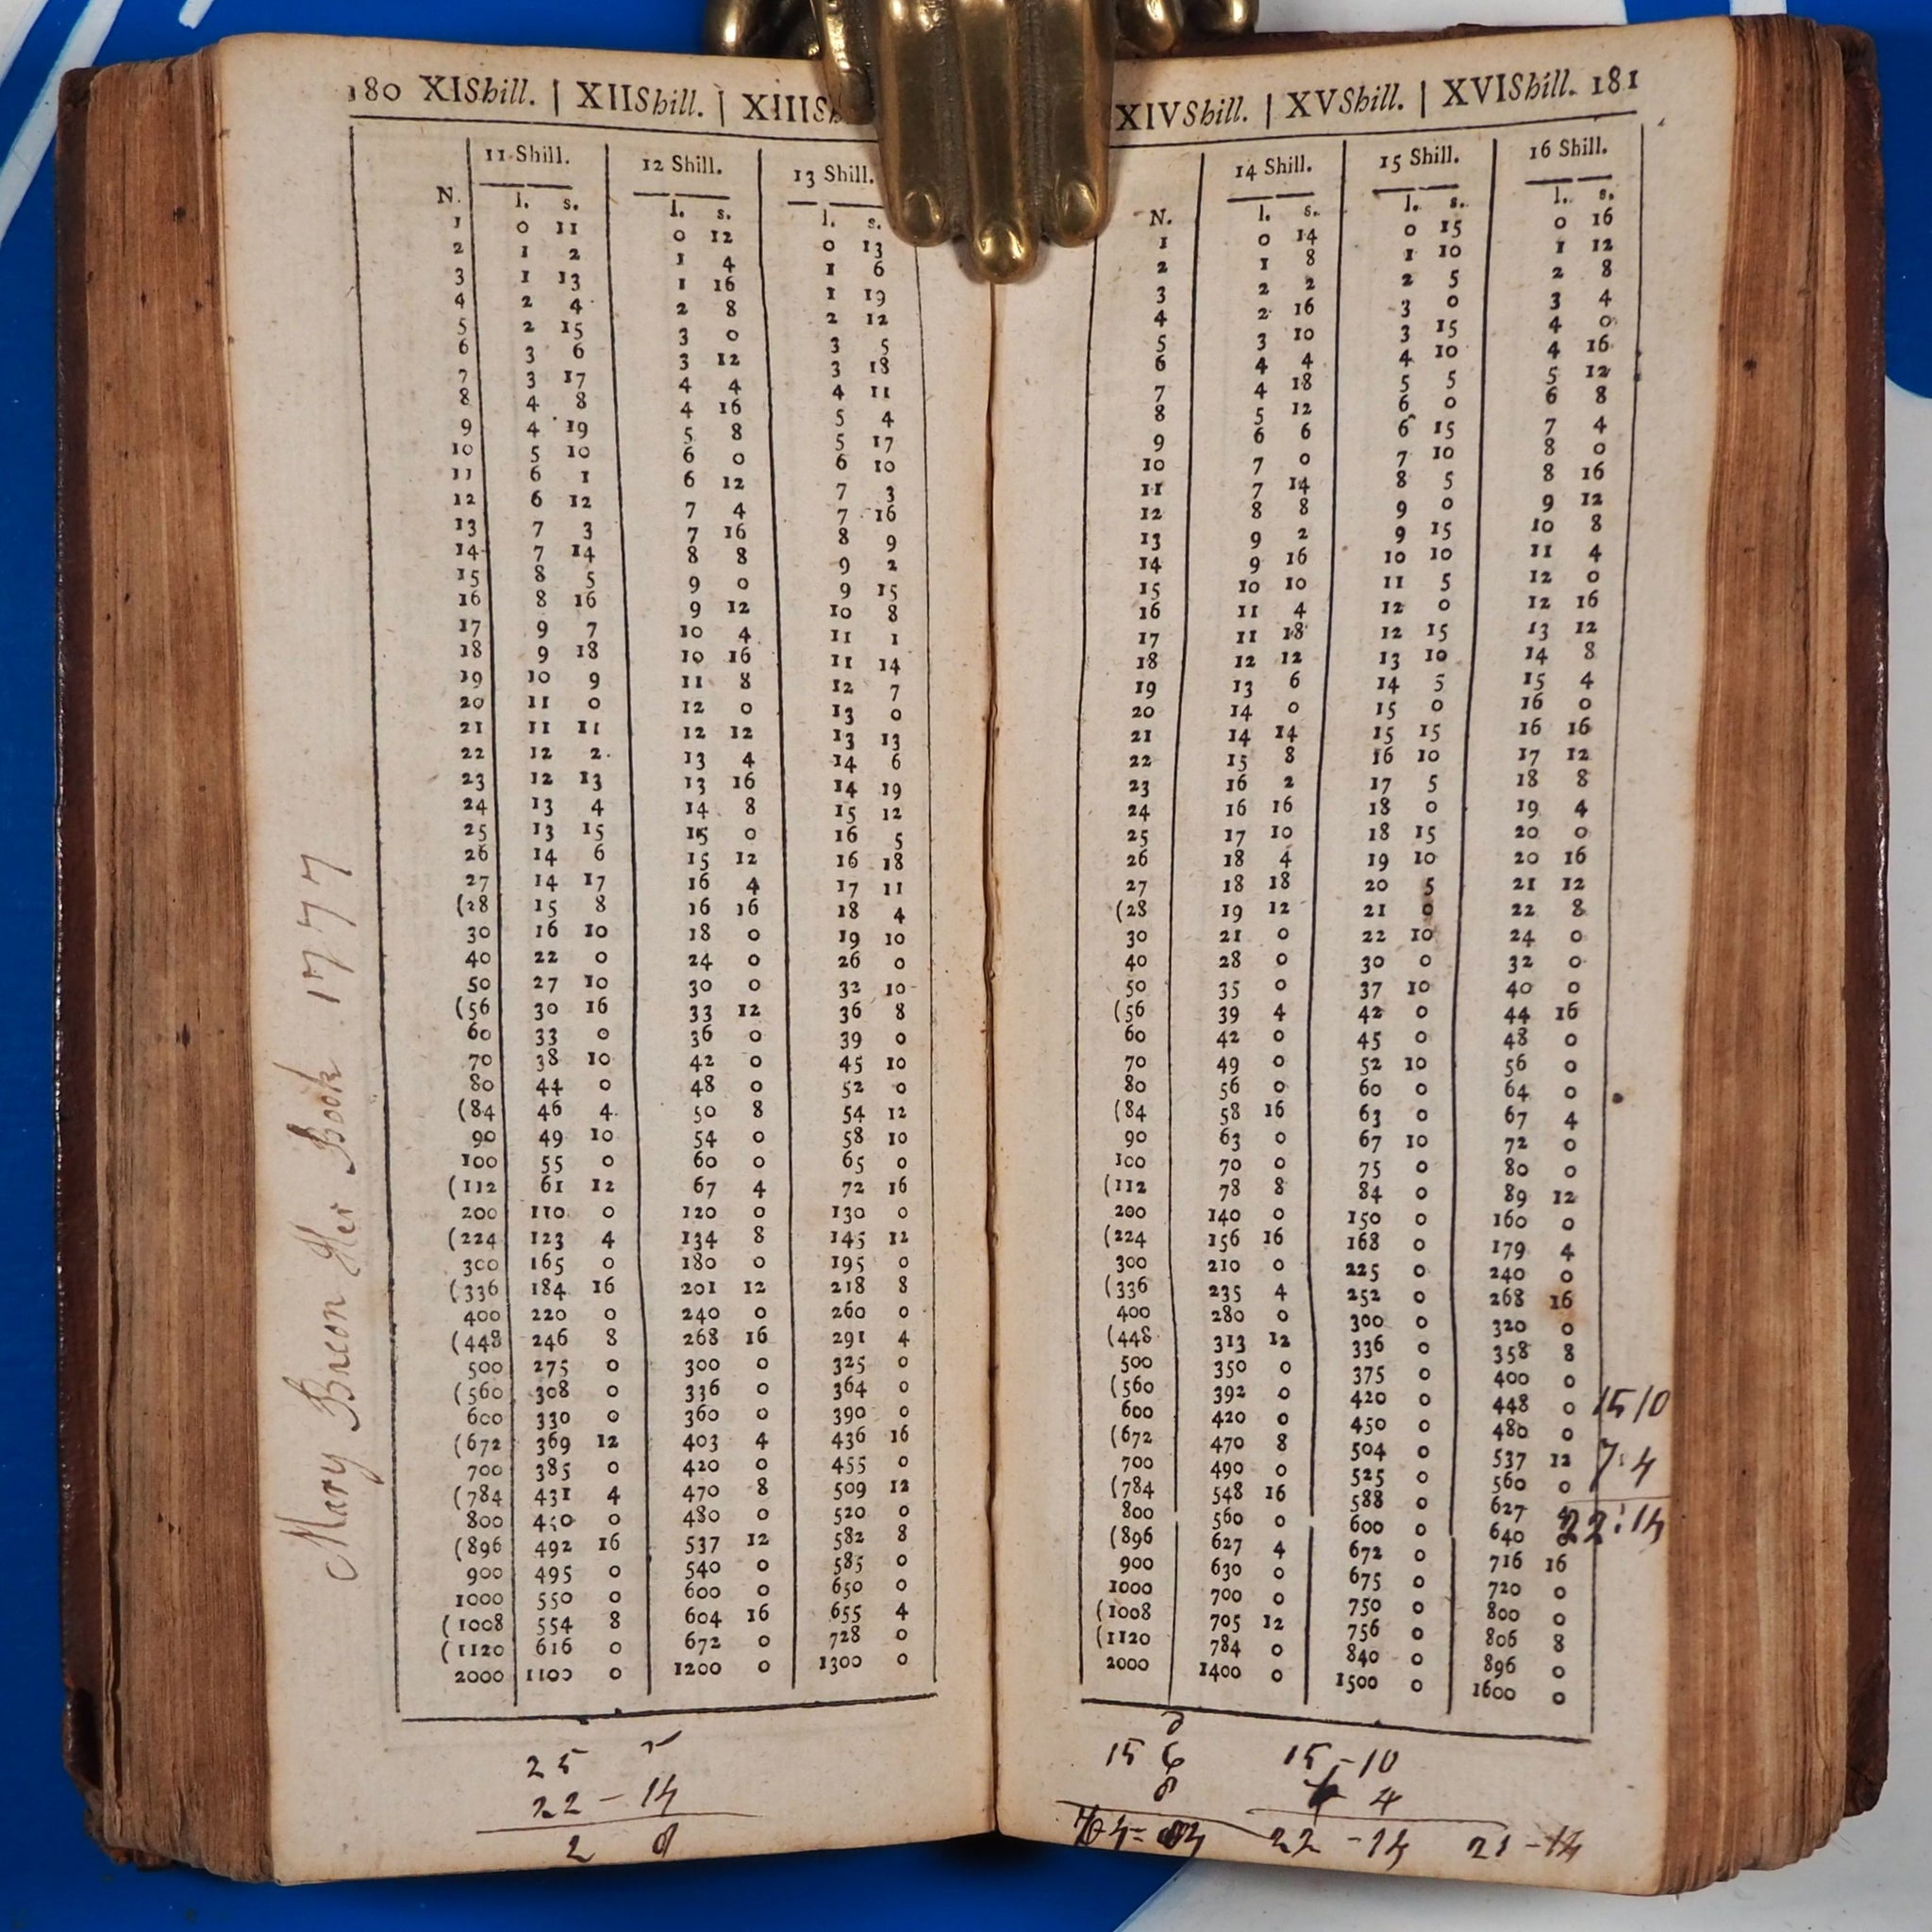 180 XIShill. | XIIShill. | XIIISh
11 Shill. 12 Shill. 13 Shill.
N. l. s. l. s. l. s.
1 0 11 0 12 0 13
2 1 2 1 4 1 6
3 1 13 1 16 1 19
4 2 4 2 8 2 12
5 2 15 3 0 3 5
6 3 6 3 12 3 18
7 3 17 4 4 4 11
8 4 8 4 16 5 4
9 4 19 5 8 5 17
10 5 10 6 0 6 10
11 6 1 6 12 7 3
12 6 12 7 4 7 16
13 7 3 7 16 8 9
14 7 14 8 8 9 2
15 8 5 9 0 9 15
16 8 16 9 12 10 8
17 9 7 10 4 11 1
18 9 18 10 16 11 14
19 10 9 11 8 12 7
20 11 0 12 0 13 0
21 11 11 12 12 13 13
22 12 2 13 4 14 6
23 12 13 13 16 14 19
24 13 4 14 8 15 12
25 13 15 15 0 16 5
26 14 6 15 12 16 18
27 14 17 16 4 17 11
(28 15 8 16 16 18 4
30 16 10 18 0 19 10
40 22 0 24 0 26 0
50 27 10 30 0 32 10
(56 30 16 33 12 36 8
60 33 0 36 0 39 0
70 38 10 42 0 45 10
80 44 0 48 0 52 0
(84 46 4 50 8 54 12
90 49 10 54 0 58 10
100 55 0 60 0 65 0
(112 61 12 67 4 72 16
200 110 0 120 0 130 0
(224 123 4 134 8 145 12
300 165 0 180 0 195 0
(336 184 16 201 12 218 8
400 220 0 240 0 260 0
(448 246 8 268 16 291 4
500 275 0 300 0 325 0
(560 308 0 336 0 364 0
600 330 0 360 0 390 0
(672 369 12 403 4 436 16
700 385 0 420 0 455 0
(784 431 4 470 8 509 12
800 440 0 480 0 520 0
(896 492 16 537 12 582 8
900 495 0 540 0 585 0
1000 550 0 600 0 650 0
(1008 554 8 604 16 655 4
(1120 616 0 672 0 728 0
2000 1100 0 1200 0 1300 0
Mary Breon Her Book 1777
25
22 - 14
2
XIVShill. | XVShill. | XVIShill. 181
14 Shill. 15 Shill. 16 Shill.
N. l. s. l. s. l. s.
1 0 14 0 15 0 16
2 1 8 1 10 1 12
3 2 2 2 5 2 8
4 2 16 3 0 3 4
5 3 10 3 15 4 0
6 4 4 4 10 4 16
7 4 18 5 5 5 12
8 5 12 6 0 6 8
9 6 6 6 15 7 4
10 7 0 7 10 8 0
11 7 14 8 5 8 16
12 8 8 9 0 9 12
13 9 2 9 15 10 8
14 9 16 10 10 11 4
15 10 10 11 5 12 0
16 11 4 12 0 12 16
17 11 18 12 15 13 12
18 12 12 13 10 14 8
19 13 6 14 5 15 4
20 14 0 15 0 16 0
21 14 14 15 15 16 16
22 15 8 16 10 17 12
23 16 2 17 5 18 8
24 16 16 18 0 19 4
25 17 10 18 15 20 0
26 18 4 19 10 20 16
27 18 18 20 5 21 12
(28 19 12 21 0 22 8
30 21 0 22 10 24 0
40 28 0 30 0 32 0
50 35 0 37 10 40 0
(56 39 4 42 0 44 16
60 42 0 45 0 48 0
70 49 0 52 10 56 0
80 56 0 60 0 64 0
(84 58 16 63 0 67 4
90 63 0 67 10 72 0
100 70 0 75 0 80 0
(112 78 8 84 0 89 12
200 140 0 150 0 160 0
(224 156 16 168 0 179 4
300 210 0 225 0 240 0
(336 235 4 252 0 268 16
400 280 0 300 0 320 0
(448 313 12 336 0 358 8
500 350 0 375 0 400 0
(560 392 0 420 0 448 0
600 420 0 450 0 480 0
(672 470 8 504 0 537 12
700 490 0 525 0 560 0
(784 548 16 588 0 627
800 560 0 600 0 640
(896 627 4 672 0 716 16
900 630 0 675 0 720 0
1000 700 0 750 0 800 0
(1008 705 12 756 0 806 8
(1120 784 0 840 0 896 0
2000 1400 0 1500 0 1600 0
15 10
7:4
22:14
15 6 15-10
8 4
22-14 21-14